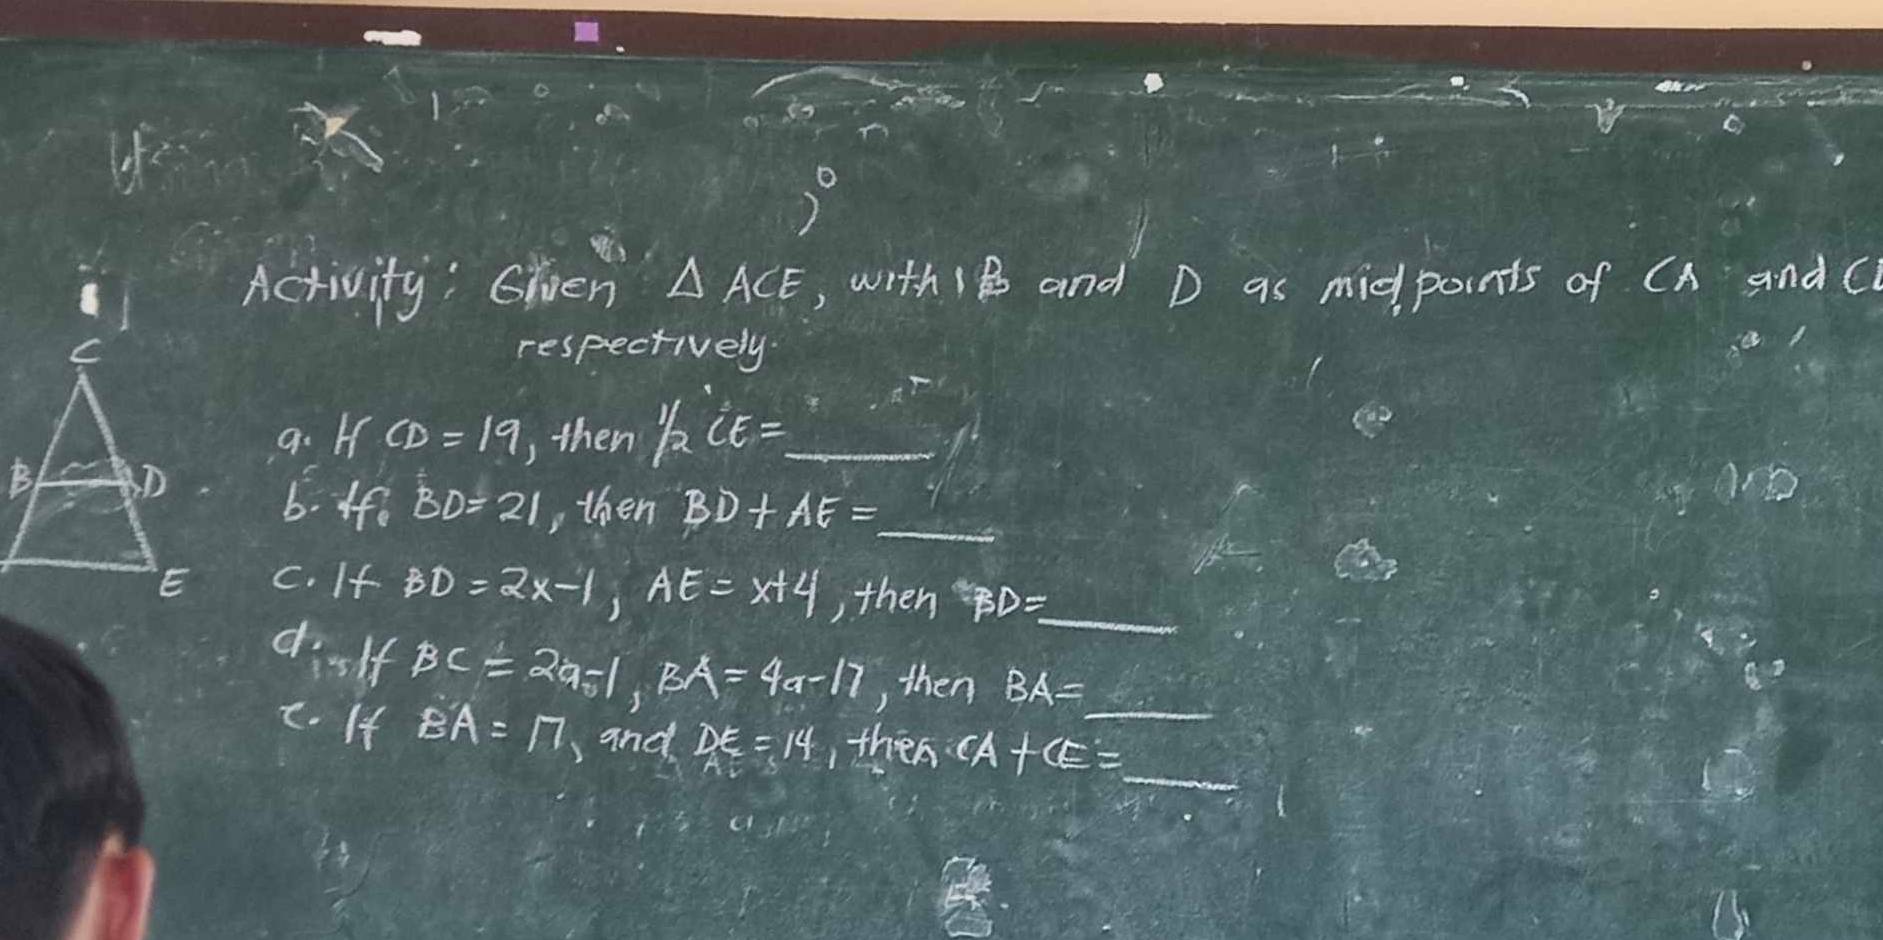 Activity: Given △ ACE, with B and D as midpoints of CA and
respectively.
C
a. If CD = 19, then 1/2 CE = ______
B D
b. If BD = 21, then BD + AE = ______
E
c. If BD = 2x-1, AE = x+4, then BD= ______
d. If BC = 2a-1, BA = 4a-17, then BA= ______
e. If BA = 17, and DE = 14, then CA + CE = ______